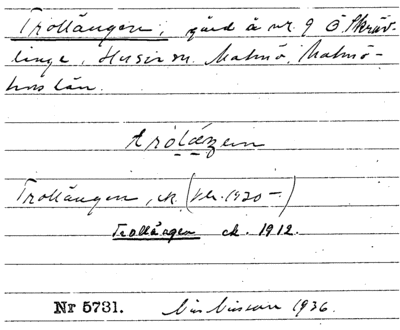 Trollängen, gård å nr. 9 Ö. Skräv-
linge, Husie sn. Malmö, Malmö-
hus län.
Trollängen, ek. (1920–)
Trollängen ek. 1912.
Nr 5731. 1936.